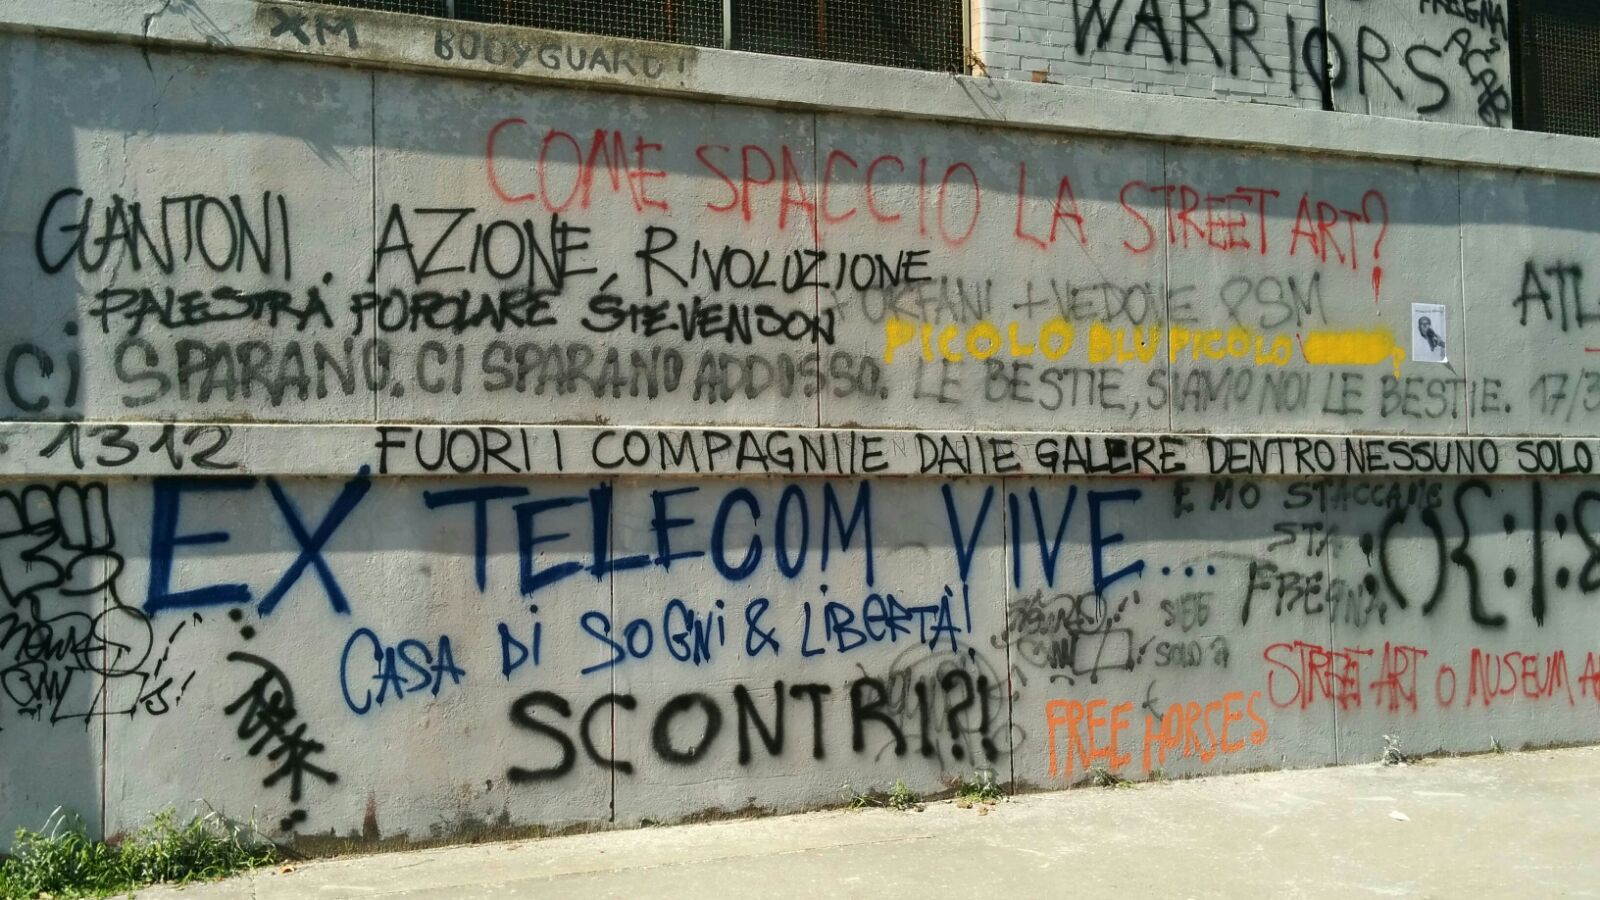 XM BODYGUARD!
WARRIORS
FREGNA
COME SPACCIO LA STREET ART?!
GUANTONI. AZIONE, RIVOLUZIONE
PALESTRA POPOLARE STEVENSON
+ ORFANI + VEDOVE PSM
ATL
PICOLO BLU PICOLO
CI SPARANO. CI SPARANO ADDOSSO. LE BESTIE, SIAMO NOI LE BESTIE. 17/3
1312
FUORI I COMPAGNI E DALLE GALERE DENTRO NESSUNO SOLO
EX TELECOM VIVE...
CASA Di SOGNi & LiBERTÀ!
SCONTRI?!
E MO STACCAME
STA
FREGNA
SEE
SOLD?
():|:
STREET ART O MUSEUM A
FREE HORSES